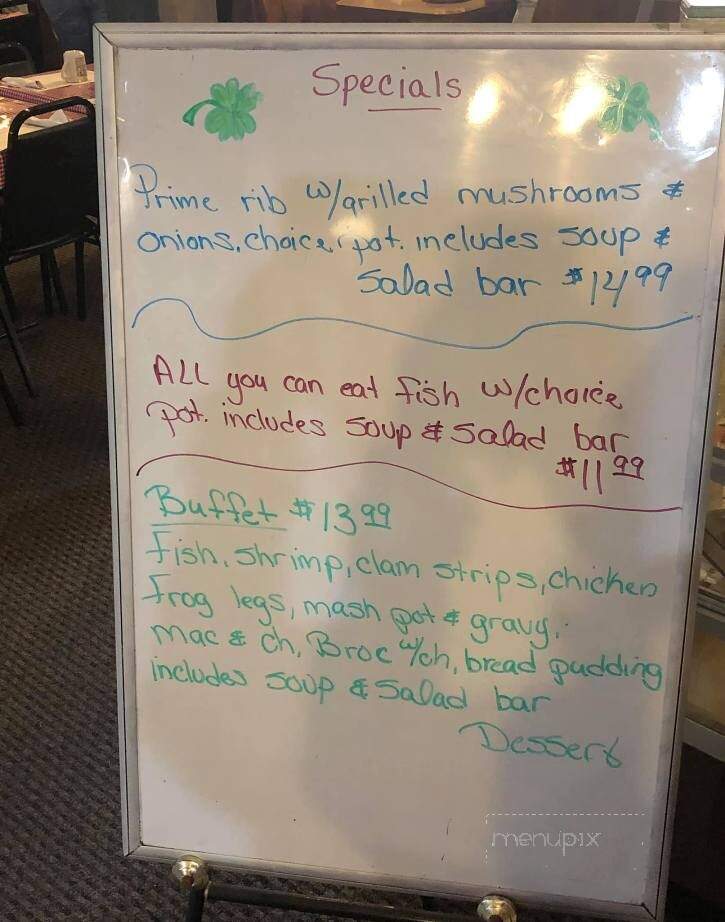 Specials
Prime rib w/grilled mushrooms &
onions, choice pot. includes soup &
Salad bar $14.99
ALL you can eat fish w/choice
pot. includes soup & salad bar
$11.99
Buffet $13.99
fish, shrimp, clam strips, chicken
frog legs, mash pot & gravy,
mac & ch, Broc w/ch, bread pudding
includes soup & salad bar
Dessert
menupix